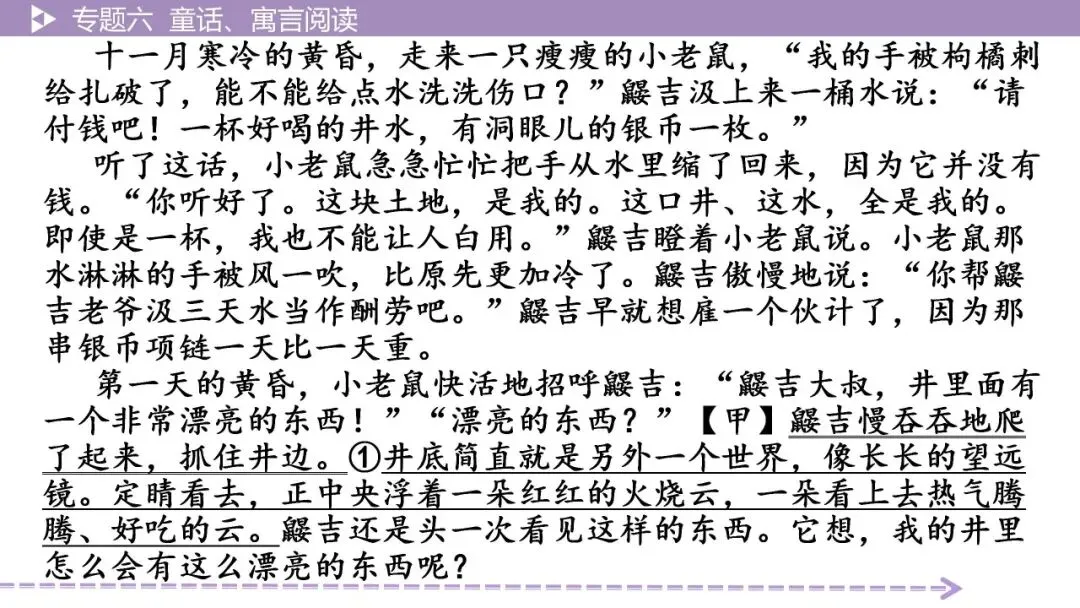 专题六 童话、寓言阅读
十一月寒冷的黄昏，走来一只瘦瘦的小老鼠，“我的手被枸橘刺
给扎破了，能不能给点水洗洗伤口？”鼹吉汲上来一桶水说：“请
付钱吧！一杯好喝的井水，有洞眼儿的银币一枚。”
听了这话，小老鼠急急忙忙把手从水里缩了回来，因为它并没有
钱。“你听好了。这块土地，是我的。这口井、这水，全是我的。
即使是一杯，我也不能让人白用。”鼹吉瞪着小老鼠说。小老鼠那
水淋淋的手被风一吹，比原先更加冷了。鼹吉傲慢地说：“你帮鼹
吉老爷汲三天水当作酬劳吧。”鼹吉早就想雇一个伙计了，因为那
串银币项链一天比一天重。
第一天的黄昏，小老鼠快活地招呼鼹吉：“鼹吉大叔，井里面有
一个非常漂亮的东西！”“漂亮的东西？”【甲】鼹吉慢吞吞地爬
了起来，抓住井边。①井底简直就是另外一个世界，像长长的望远
镜。定睛看去，正中央浮着一朵红红的火烧云，一朵看上去热气腾
腾、好吃的云。鼹吉还是头一次看见这样的东西。它想，我的井里
怎么会有这么漂亮的东西呢？